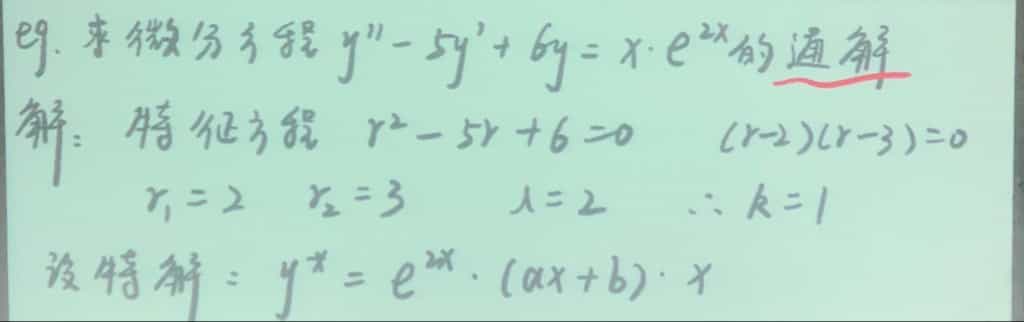 eg. 求微分方程 y'' - 5y' + 6y = x · e^{2x} 的通解
解: 特征方程 r² - 5r + 6 = 0 (r-2)(r-3) = 0
r₁ = 2 r₂ = 3 λ = 2 ∴ k = 1
设特解: y* = e^{2x} · (ax + b) · x